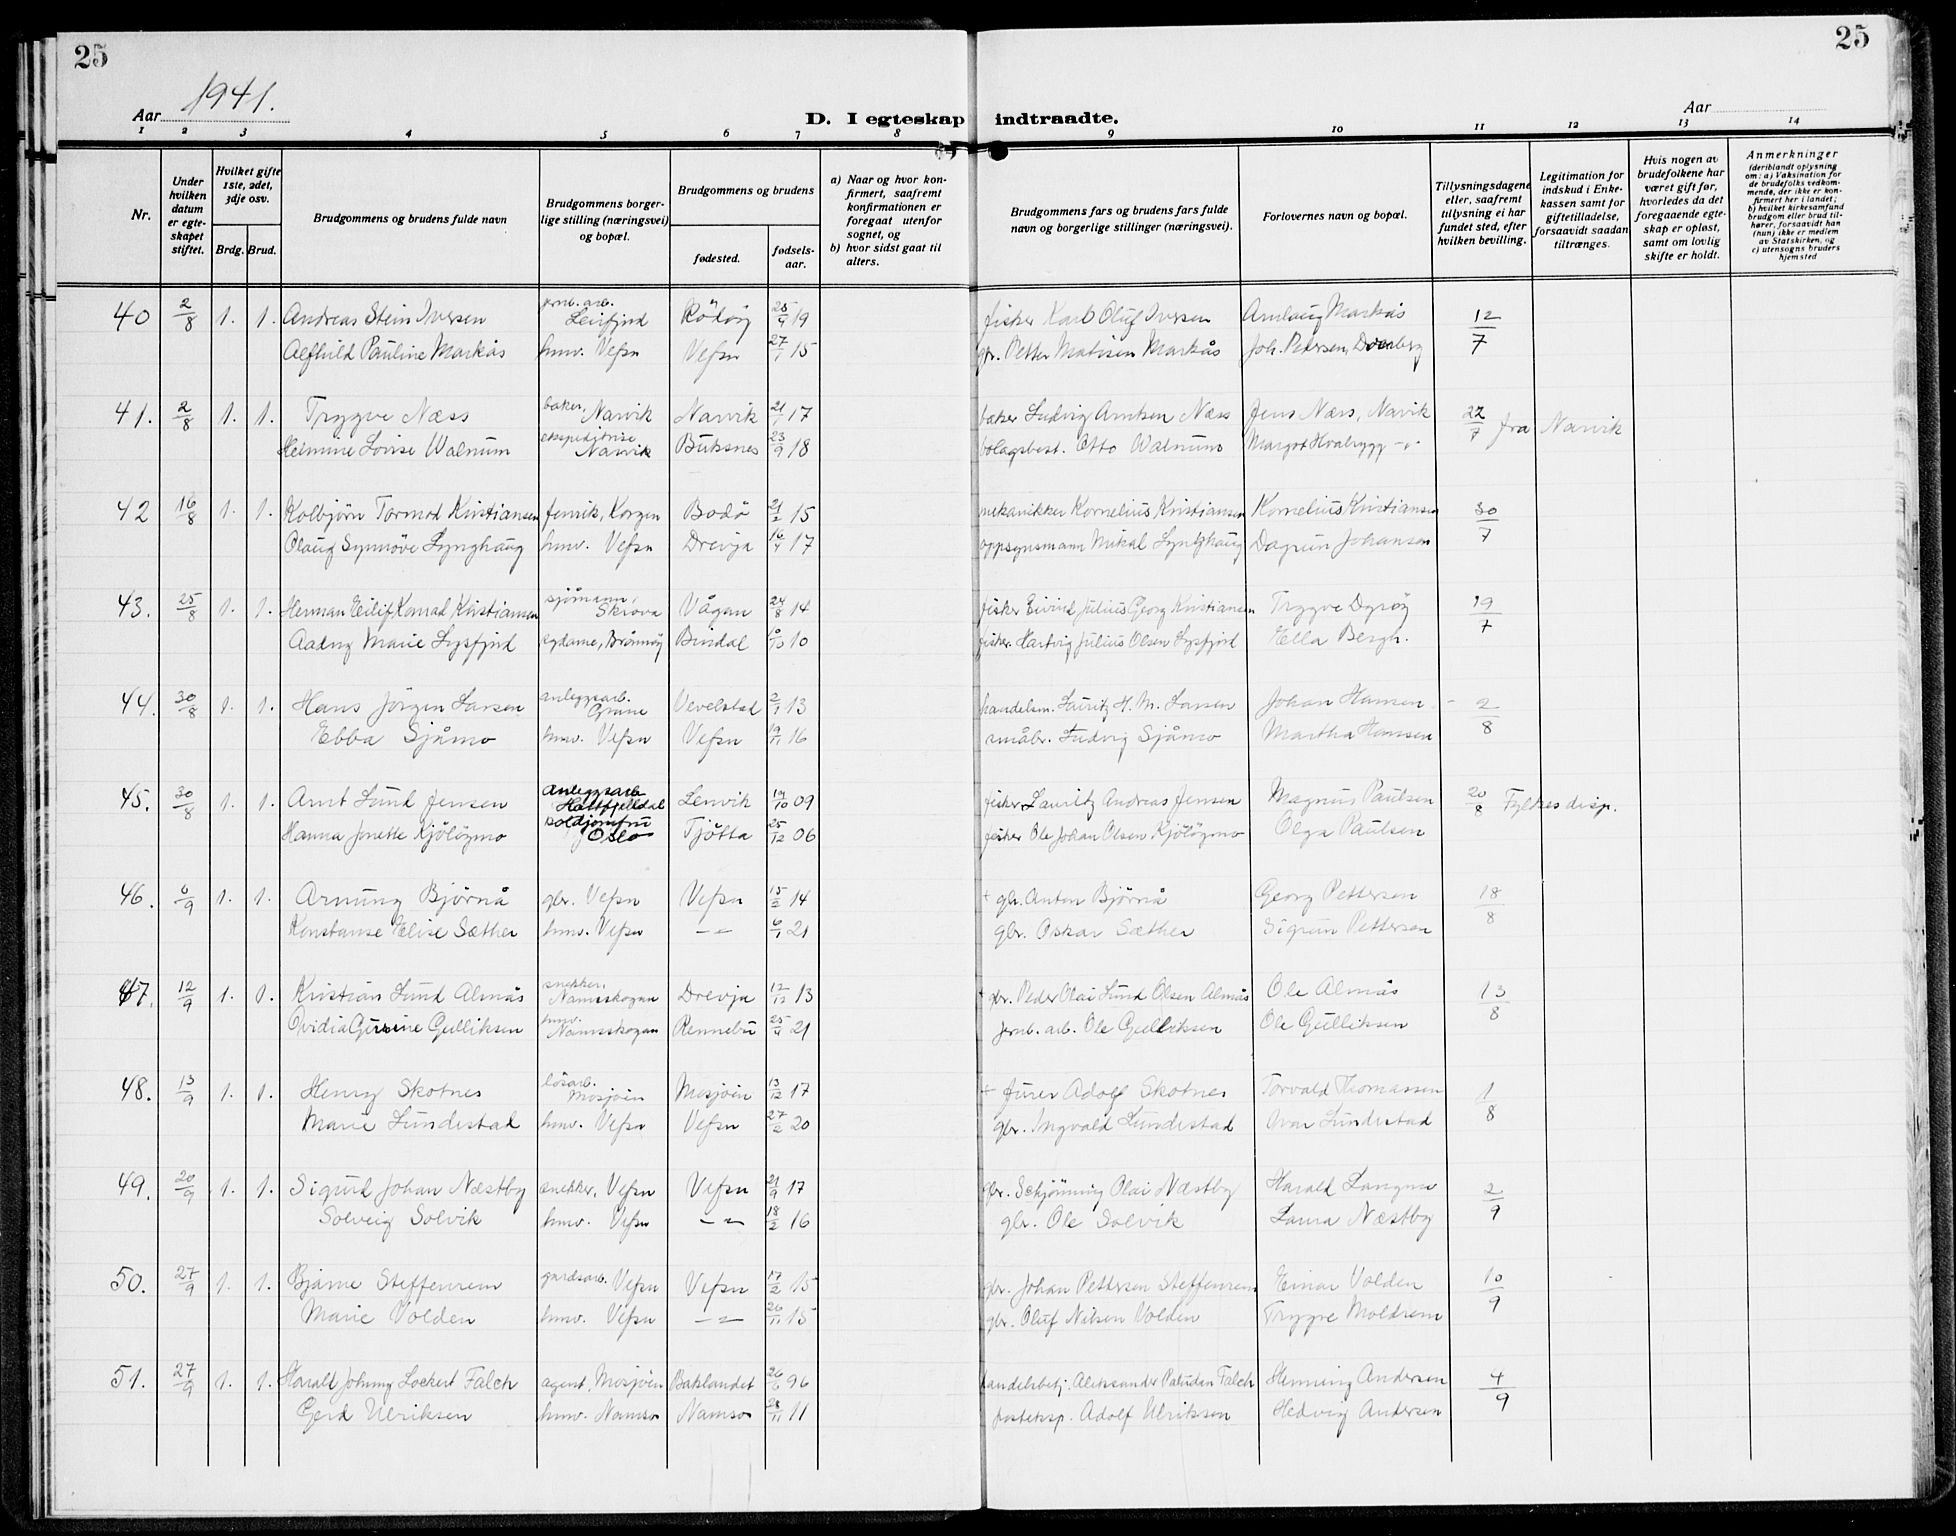 25
25
Aar 1941.
D. I egteskap indtraadte.
Aar
1 2 3 4 5 6 7 8 9 10 11 12 13 14
Nr.
Under hvilken datum er egteskapet stiftet.
Hvilket gifte 1ste, 2det, 3dje osv.
Brdg. Brud.
Brudgommens og brudens fulde navn
Brudgommens borgerlige stilling (næringsvei) og bopæl.
Brudgommens og brudens
fødested.
fødselsaar.
a) Naar og hvor konfirmert, saafremt konfirmationen er foregaat utenfor sognet, og
b) hvor sidst gaat til alters.
Brudgommens fars og brudens fars fulde navn og borgerlige stillinger (næringsvei).
Forlovernes navn og bopæl.
Tillysningsdagene eller, saafremt tillysning ei har fundet sted, efter hvilken bevilling.
Legitimation for indskud i Enkekassen samt for giftetilladelse, forsaavidt saadan tiltrænges.
Hvis nogen av brudefolkene har været gift før, hvorledes da det foregaaende egteskap er opløst, samt om lovlig skifte er holdt.
Anmerkninger
(deriblandt oplysning om: a) Vaksination for de brudefolks vedkommende, der ikke er konfirmert her i landet; b) hvilket kirkesamfund brudgom eller brud tilhører, forsaavidt han (hun) ikke er medlem av Statskirken, og c) utensogns bruders hjemsted
40 2/8 1. 1. Andreas Stein Iversen jernb. arb. Leirfjord Rödöy 19 fisker Karl Oluf Iversen Arnlaug Markås 12/7
Alfhild Pauline Markås hmv. Vefsn Vefsn 27/1 15 gbr. Petter Matisen Markås Joh. Petersen,
41. 2/8 1. 1. Trygve Næss baker, Narvik Narvik 21/1 17 baker Ludvig Arntsen Næss Jens Næss, Narvik 22/7 fra Narvik
Helmine Lovise Walnum ekspeditrise Narvik Buksnes 23/9 18 bolagsbest. Otto Walnum Margot -"-
42 16/8 1. 1. Kolbjørn Tormod Kristiansen fenrik, Korgen Bodö 21/2 15 mekanikker Kornelius Kristiansen Kornelius Kristiansen 30/7
Olaug Synnöve Lynghaug hmv. Vefsn Drevja 16/4 17 oppsynsmann Mikal Lynghaug Dagrun Johansen
43. 25/8 1. 1. Herman Eilif Konrad Kristiansen sjömann, Skrova Vågan 24/8 14 fisker Eivind Julius Georg Kristiansen Trygve Dyröy 19/7
Aadny Marie Lysfjord sydame, Brönnöy Bindal 10 fisker Hartvig Julius Olsen Lysfjord Hella Bergh.
44. 30/8 1. 1. Hans Jörgen Larsen anleggsarb. Grane Vevelstad 2/1 13 handelsm. Lauritz H. M. Larsen Johan Hansen 2/8
Ebba Sjåmo hmv. Vefsn Vefsn 19/11 16 småbr. Ludvig Sjåmo Martha Hansen
45. 30/8 1. 1. Arnt Lund Jensen anleggsarb Hattfjelldal Lenvik 19/10 09 fisker Lauritz Andreas Jensen Magnus Paulsen 20/8 Fylkesdisp.
Hanna Jonette Kjölöymo Oslo Tjötta 25/12 06 fisker Ole Johan Olsen Kjölöymo Olga Paulsen
46. 6/9 1. 1. Arnung Bjørnå gbr. Vefsn Vefsn 15/2 14 + gbr. Anton Bjørnå Georg Pettersen 18/8
Konstanse Elise Sæther hmv. Vefsn -"- 6/1 21 gbr. Oskar Sæther Sigrun Pettersen
47. 12/9 1. 1. Kristian Lund Almås snekker, Namsskogan Drevja 12/12 13 gbr. Peder Olai Lund Olsen Almås Ole Almås 13/8
Ovidia Gurine Gulliksen hmv. Namsskogan Rennebu 25/4 21 jernb. arb. Ole Gulliksen Ole Gulliksen
48. 13/9 1. 1. Henry Skotnes lösarb. Mosjöen Mosjöen 13/12 17 + fürer Adolf Skotnes Torvald Thomassen 1/8
Marie Lundestad hmv. Vefsn Vefsn 27/2 20 gbr. Ingvald Lundestad Ivar Lundestad
49. 20/9 1. 1. Sigurd Johan Næstby snekker, Vefsn Vefsn 21/9 17 gbr. Schjönning Olai Næstby Harald Langmo 2/9
Solveig Solvik hmv. Vefsn -"- 18/2 16 gbr. Ole Solvik Laura Næstby
50. 27/9 1. 1. Bjarne Steffenrem gardsarb. Vefsn Vefsn 17/2 15 gbr. Johan Pettersen Steffenrem Einar Volden 10/9
Marie Volden hmv. Vefsn -"- 26/11 15 gbr. Oluf Nilsen Volden Trygve Moldrem
51. 27/9 1. 1. Harald Johnny Lockert Falch agent, Mosjöen Baklandet 26/6 96 handelsbetj. Aleksander Paludan Falch Henning Andersen 4/9
Gerd Ulriksen hmv. Namsos Namsos 28/11 11 posteksp. Adolf Ulriksen Hedvig Andersen